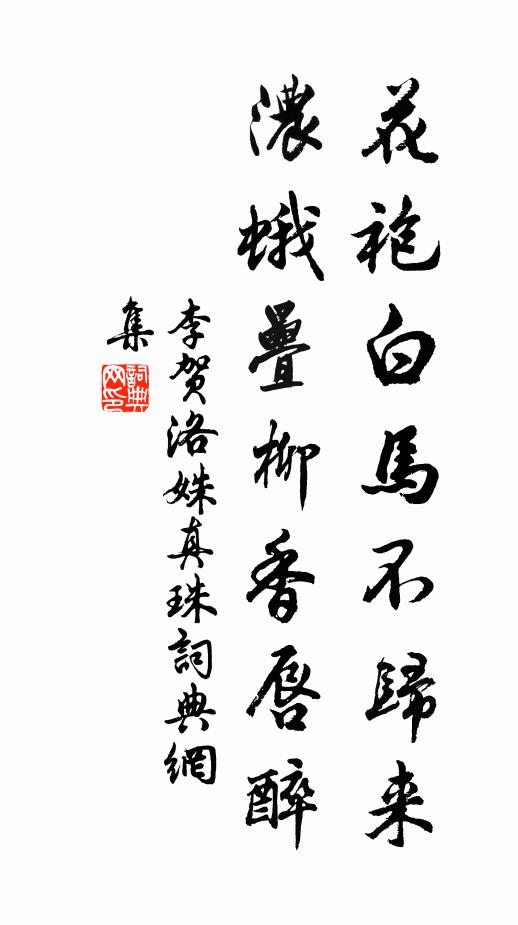 花袍白馬不歸来
濃蛾疊柳香唇醉
李賀洛姝真珠詞典網
集
詞典網印